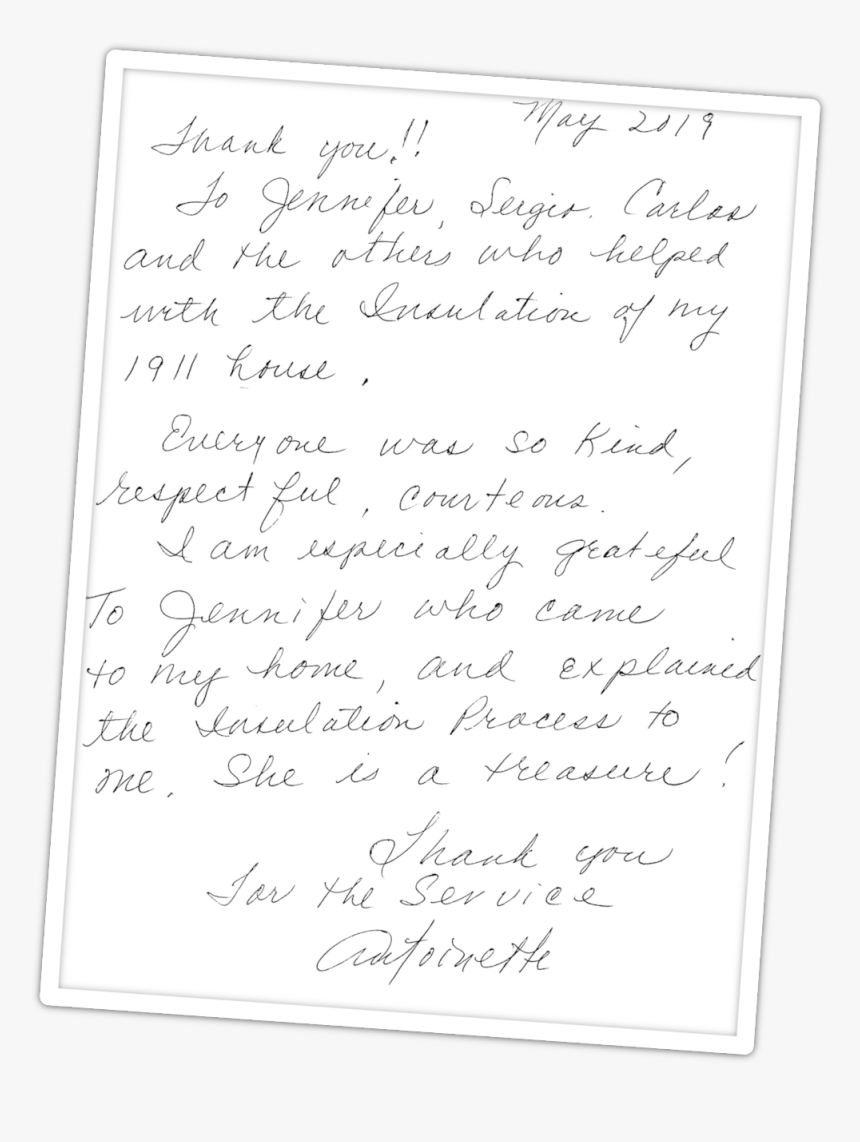 May 2019
Thank you!!
To Jennefer, Sergio. Carlos
and the others who helped
with the Insulation of my
1911 house.
Everyone was so Kind,
respectful, courteous.
I am especially grateful
To Jennifer who came
to my home, and explained
the Insulation Process to
me. She is a treasure!
Thank you
For the Service
Antoinette